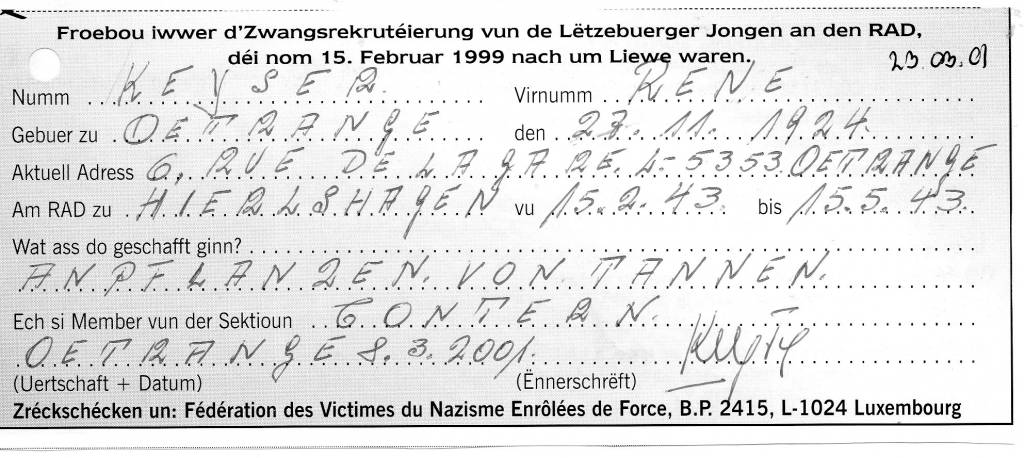 Froebou iwwer d'Zwangsrekrutéierung vun de Lëtzebuerger Jongen an den RAD,
déi nom 15. Februar 1999 nach um Liewe waren.
23.03.01
Numm KEYSER Virnumm RENE
Gebuer zu OETRANGE den 28.11.1924
Aktuell Adress 6, RUE DE LA GARE. L-5353 OETRANGE
Am RAD zu HIERLSHAGEN vu 15.2.43. bis 15.5.43.
Wat ass do geschafft ginn?
ANPFLANZEN VON TANNEN.
Ech si Member vun der Sektioun CONTERN.
OETRANGE 8.3.2001.
(Uertschaft + Datum) (Ënnerschrëft)
Zréckschécken un: Fédération des Victimes du Nazisme Enrôlées de Force, B.P. 2415, L-1024 Luxembourg